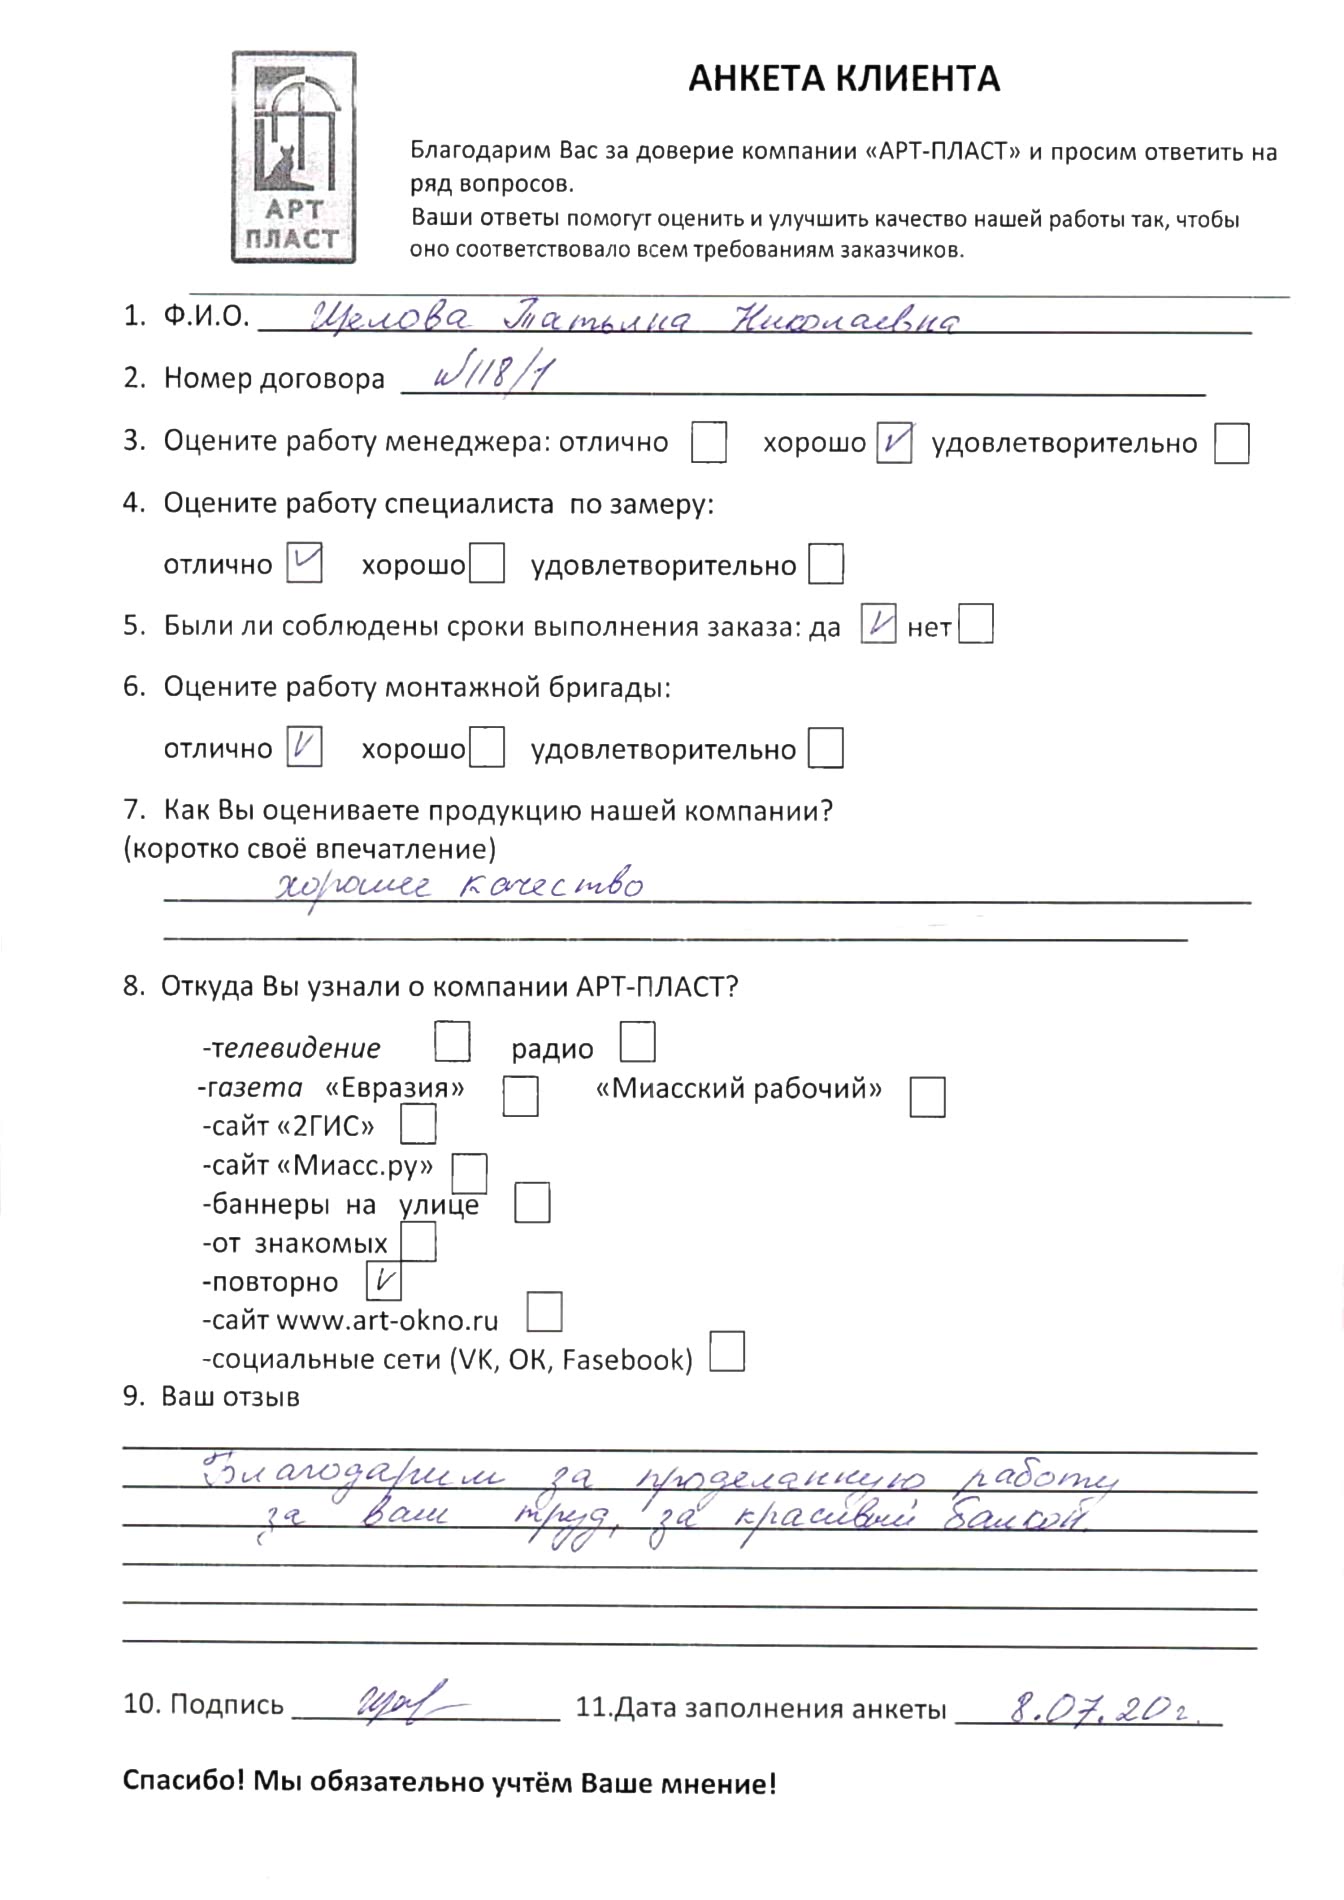 АРТ
ПЛАСТ
АНКЕТА КЛИЕНТА
Благодарим Вас за доверие компании «АРТ-ПЛАСТ» и просим ответить на
ряд вопросов.
Ваши ответы помогут оценить и улучшить качество нашей работы так, чтобы
оно соответствовало всем требованиям заказчиков.
1. Ф.И.О. Щелова Татьяна Николаевна
2. Номер договора №118/1
3. Оцените работу менеджера: отлично хорошо удовлетворительно
4. Оцените работу специалиста по замеру:
отлично хорошо удовлетворительно
5. Были ли соблюдены сроки выполнения заказа: да нет
6. Оцените работу монтажной бригады:
отлично хорошо удовлетворительно
7. Как Вы оцениваете продукцию нашей компании?
(коротко своё впечатление)
хорошее качество
8. Откуда Вы узнали о компании АРТ-ПЛАСТ?
-телевидение радио
-газета «Евразия» «Миасский рабочий»
-сайт «2ГИС»
-сайт «Миасс.ру»
-баннеры на улице
-от знакомых
-повторно
-сайт www.art-okno.ru
-социальные сети (VK, ОК, Fasebook)
9. Ваш отзыв
Благодарим за проделанную работу
за ваш труд, за красивый балкон.
10. Подпись 11.Дата заполнения анкеты 8.07.20г.
Спасибо! Мы обязательно учтём Ваше мнение!